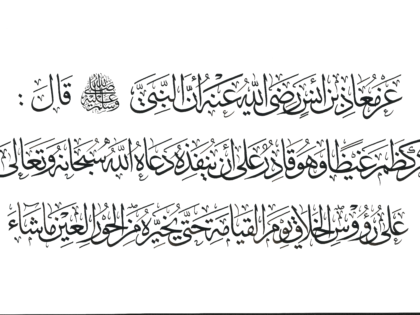 عَنْ مُعَاذِ بْنِ أَنَسٍ رَضِيَ اللهُ عَنْهُ أَنَّ النَّبِيَّ ﷺ قَالَ :
كَظَمَ غَيْظًا وَهُوَ قَادِرٌ عَلَى أَنْ يُنْفِذَهُ دَعَاهُ اللهُ سُبْحَانَهُ وَتَعَالَى
عَلَى رُؤُوسِ الْخَلَائِقِ يَوْمَ الْقِيَامَةِ حَتَّى يُخَيِّرَهُ مِنَ الْحُورِ الْعِينِ مَا شَاءَ